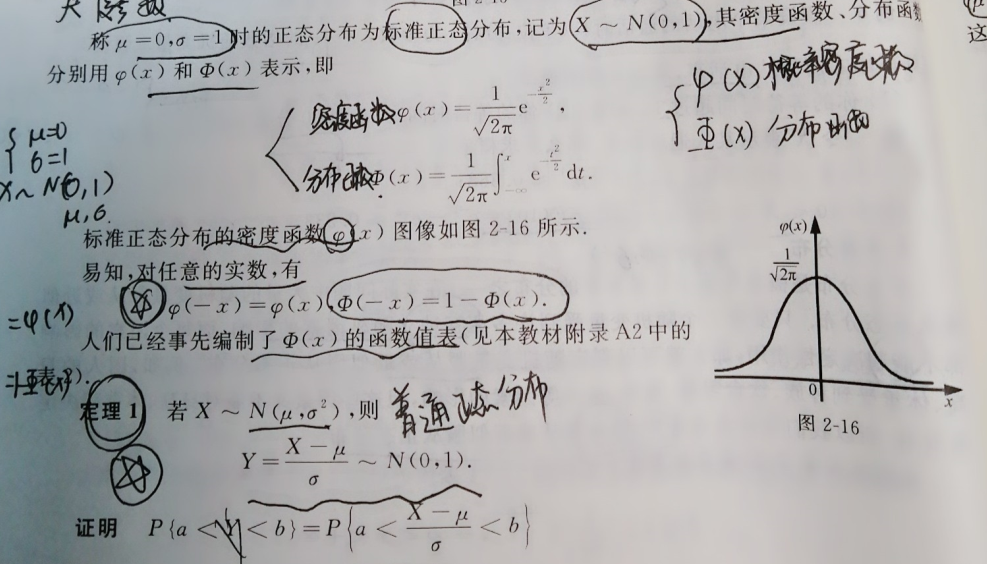 图 2-15
称 μ=0,σ=1 时的正态分布为标准正态分布,记为 X ~ N(0,1),其密度函数、分布函数
这
分别用 φ(x) 和 Φ(x) 表示,即
φ(x) 概率密度函数
Φ(x) 分布函数
密度函数 φ(x) = 1/√2π e^(-x²/2),
分布函数 Φ(x) = 1/√2π ∫_{-∞}^{x} e^(-t²/2) dt.
μ=0
σ=1
X~N(0,1)
μ,σ.
标准正态分布的密度函数 φ(x) 图像如图 2-16 所示.
易知,对任意的实数,有
φ(-x)=φ(x),Φ(-x)=1-Φ(x).
=φ(x)
人们已经事先编制了 Φ(x) 的函数值表(见本教材附录 A2 中的
定理 1 若 X ~ N(μ,σ²),则
普通正态分布
Y = (X-μ)/σ ~ N(0,1).
证明 P{a < Y < b} = P{a < (X-μ)/σ < b}
φ(x)
1/√2π
0
x
图 2-16